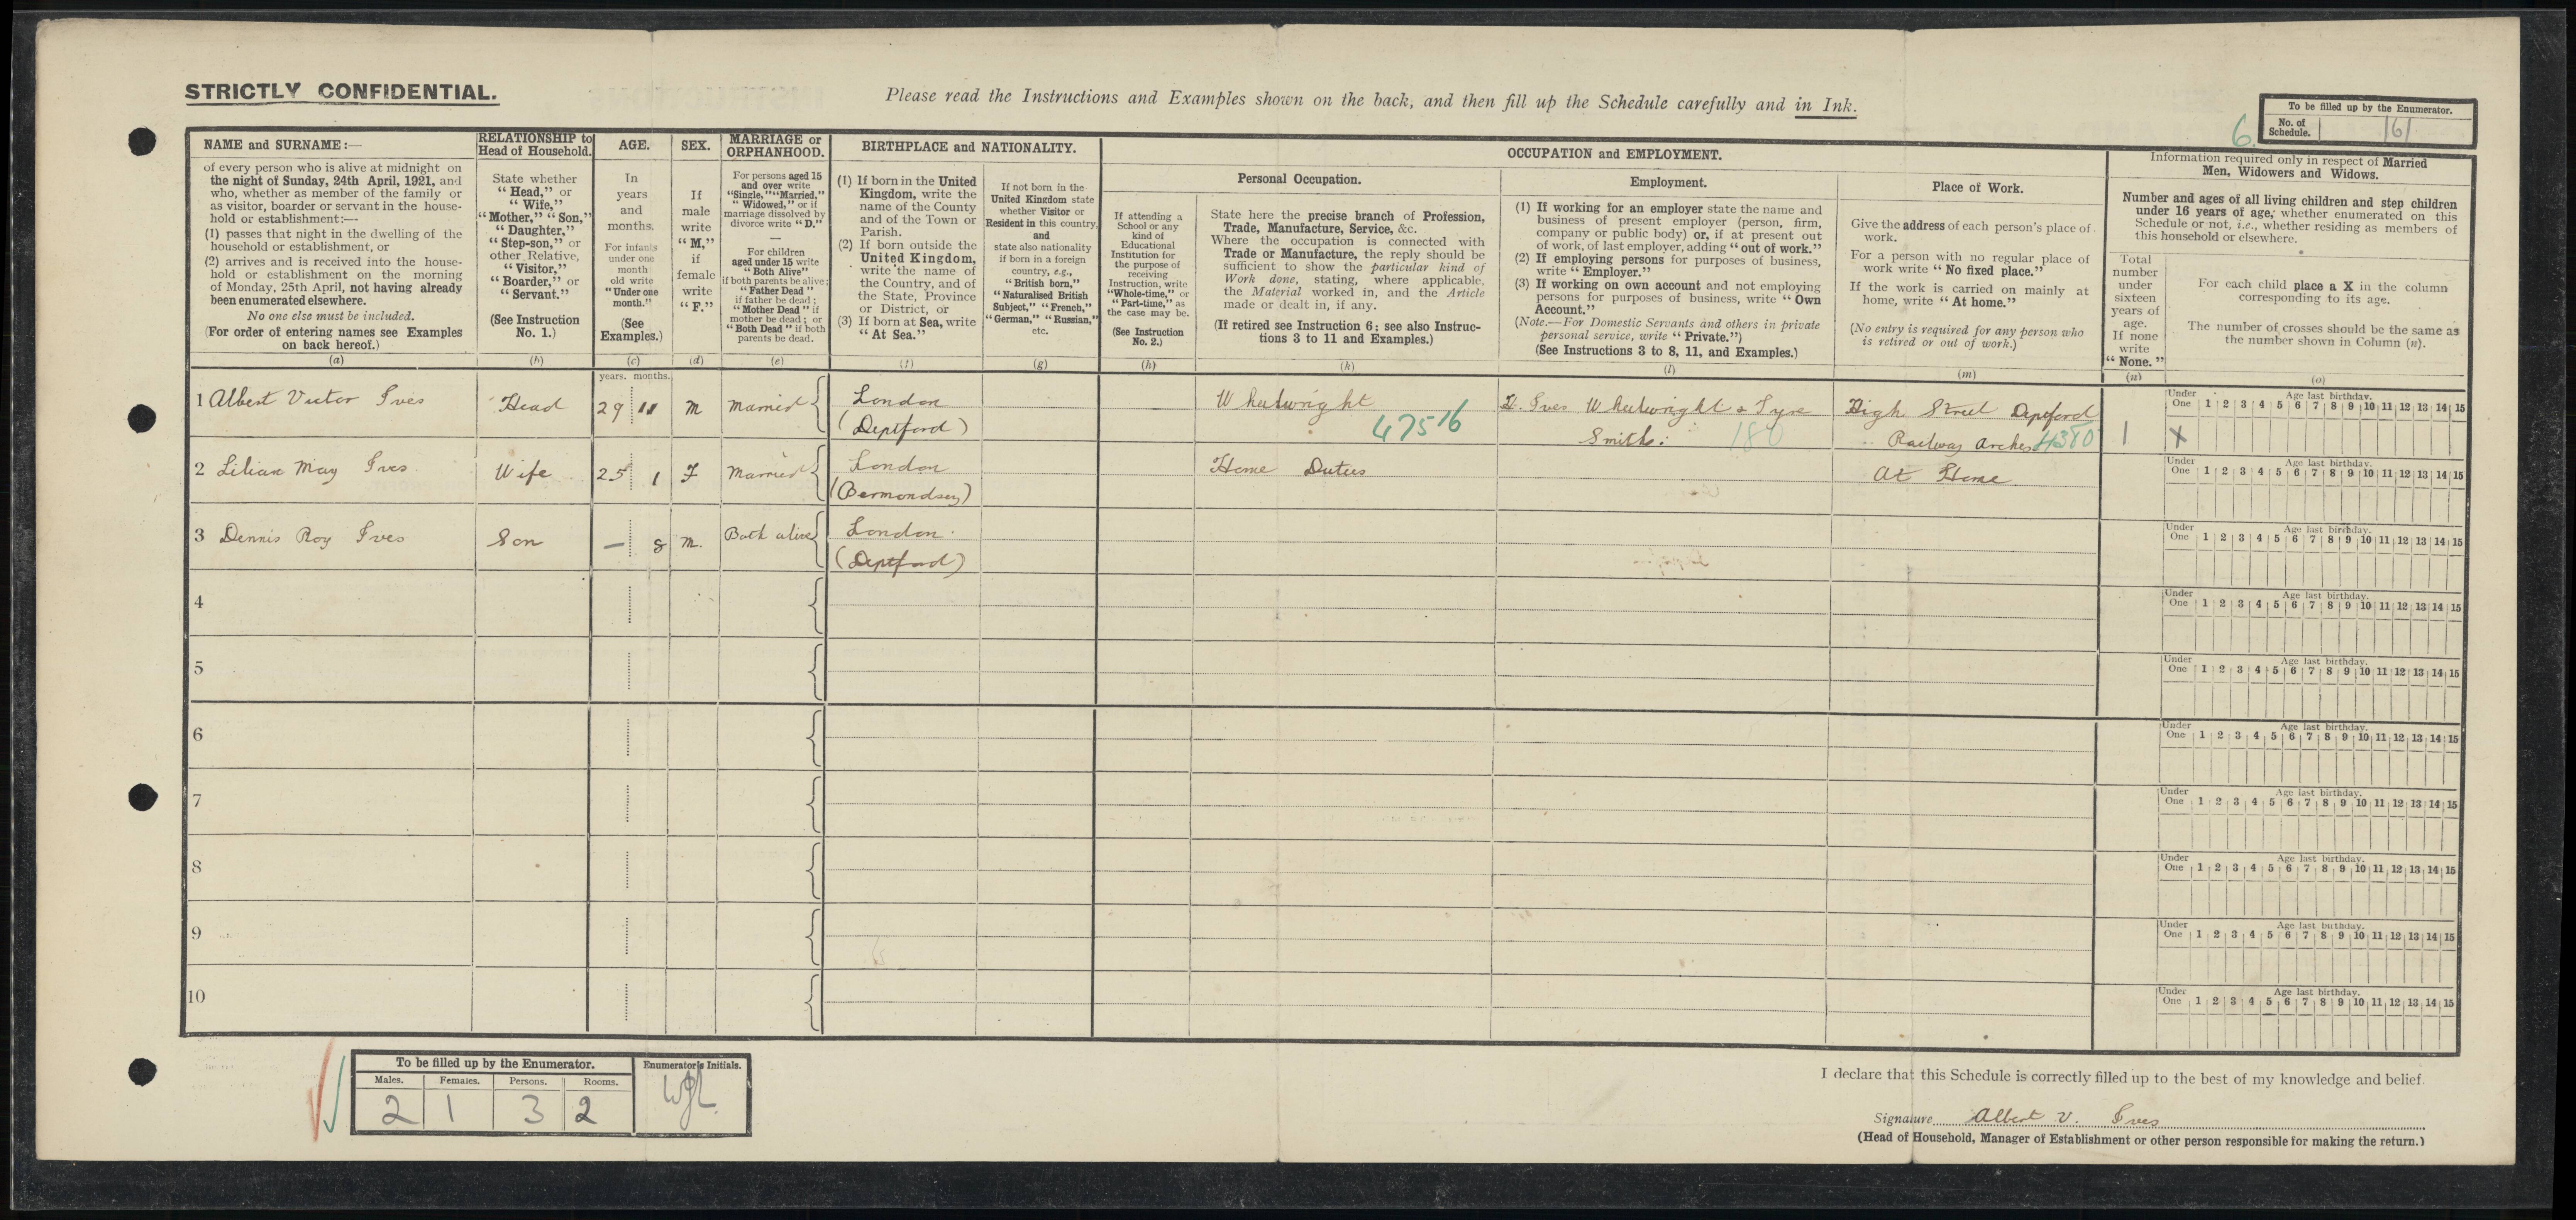 STRICTLY CONFIDENTIAL.
Please read the Instructions and Examples shown on the back, and then fill up the Schedule carefully and in Ink.
To be filled up by the Enumerator.
No. of Schedule. 161
6.
NAME and SURNAME:—
of every person who is alive at midnight on
the night of Sunday, 24th April, 1921, and
who, whether as member of the family or
as visitor, boarder or servant in the house-
hold or establishment:—
(1) passes that night in the dwelling of the
household or establishment, or
(2) arrives and is received into the house-
hold or establishment on the morning
of Monday, 25th April, not having already
been enumerated elsewhere.
No one else must be included.
(For order of entering names see Examples
on back hereof.)
(a)
RELATIONSHIP to
Head of Household.
State whether
"Head," or
"Wife,"
"Mother," "Son,"
"Daughter,"
"Step-son," or
other Relative,
"Visitor,"
"Boarder," or
"Servant."
(See Instruction
No. 1.)
(b)
AGE.
In
years
and
months.
For infants
under one
month
old write
"Under one
month."
(See
Examples.)
(c)
SEX.
If
male
write
"M,"
if
female
write
"F."
(d)
MARRIAGE or
ORPHANHOOD.
For persons aged 15
and over write
"Single," "Married,"
"Widowed," or if
marriage dissolved by
divorce write "D."
—
For children
aged under 15 write
"Both Alive"
if both parents be alive;
"Father Dead"
if father be dead;
"Mother Dead" if
mother be dead; or
"Both Dead" if both
parents be dead.
(e)
BIRTHPLACE and NATIONALITY.
(1) If born in the United
Kingdom, write the
name of the County
and of the Town or
Parish.
(2) If born outside the
United Kingdom,
write the name of
the Country, and of
the State, Province
or District, or
(3) If born at Sea, write
"At Sea."
(f)
If not born in the
United Kingdom state
whether Visitor or
Resident in this country,
and
state also nationality
if born in a foreign
country, e.g.,
"British born,"
"Naturalised British
Subject," "French,"
"German," "Russian,"
etc.
(g)
OCCUPATION and EMPLOYMENT.
If attending a
School or any
kind of
Educational
Institution for
the purpose of
receiving
Instruction, write
"Whole-time," or
"Part-time," as
the case may be.
(See Instruction
No. 2.)
(h)
Personal Occupation.
State here the precise branch of Profession,
Trade, Manufacture, Service, &c.
Where the occupation is connected with
Trade or Manufacture, the reply should be
sufficient to show the particular kind of
Work done, stating, where applicable,
the Material worked in, and the Article
made or dealt in, if any.
(If retired see Instruction 6; see also Instruc-
tions 3 to 11 and Examples.)
(k)
Employment.
(1) If working for an employer state the name and
business of present employer (person, firm,
company or public body) or, if at present out
of work, of last employer, adding "out of work."
(2) If employing persons for purposes of business,
write "Employer."
(3) If working on own account and not employing
persons for purposes of business, write "Own
Account."
(Note.—For Domestic Servants and others in private
personal service, write "Private.")
(See Instructions 3 to 8, 11, and Examples.)
(l)
Place of Work.
Give the address of each person's place of
work.
For a person with no regular place of
work write "No fixed place."
If the work is carried on mainly at
home, write "At home."
(No entry is required for any person who
is retired or out of work.)
(m)
Information required only in respect of Married
Men, Widowers and Widows.
Number and ages of all living children and step children
under 16 years of age, whether enumerated on this
Schedule or not, i.e., whether residing as members of
this household or elsewhere.
Total
number
under
sixteen
years of
age.
If none
write
"None."
(n)
For each child place a X in the column
corresponding to its age.
The number of crosses should be the same as
the number shown in Column (n).
(o)
years. months.
1 Albert Victor Ives Head 29 11 M Married London Wheelwright Ives Wheelwright & Tyre High Street Deptford
(Deptford) 475 16 Smith: 180 Railway Arches 4380 1 X
Under One Age last birthday. 1 2 3 4 5 6 7 8 9 10 11 12 13 14 15
2 Lilian May Ives Wife 25 1 F Married London Home Duties At Home
(Bermondsey)
Under One Age last birthday. 1 2 3 4 5 6 7 8 9 10 11 12 13 14 15
3 Dennis Roy Ives Son — 8 M. Both alive London.
(Deptford)
Under One Age last birthday. 1 2 3 4 5 6 7 8 9 10 11 12 13 14 15
4
Under One Age last birthday. 1 2 3 4 5 6 7 8 9 10 11 12 13 14 15
5
Under One Age last birthday. 1 2 3 4 5 6 7 8 9 10 11 12 13 14 15
6
Under One Age last birthday. 1 2 3 4 5 6 7 8 9 10 11 12 13 14 15
7
Under One Age last birthday. 1 2 3 4 5 6 7 8 9 10 11 12 13 14 15
8
Under One Age last birthday. 1 2 3 4 5 6 7 8 9 10 11 12 13 14 15
9
Under One Age last birthday. 1 2 3 4 5 6 7 8 9 10 11 12 13 14 15
10
Under One Age last birthday. 1 2 3 4 5 6 7 8 9 10 11 12 13 14 15
To be filled up by the Enumerator.
Males. Females. Persons. Rooms.
2 1 3 2
Enumerator's Initials.
I declare that this Schedule is correctly filled up to the best of my knowledge and belief.
Signature Albert V. Ives
(Head of Household, Manager of Establishment or other person responsible for making the return.)